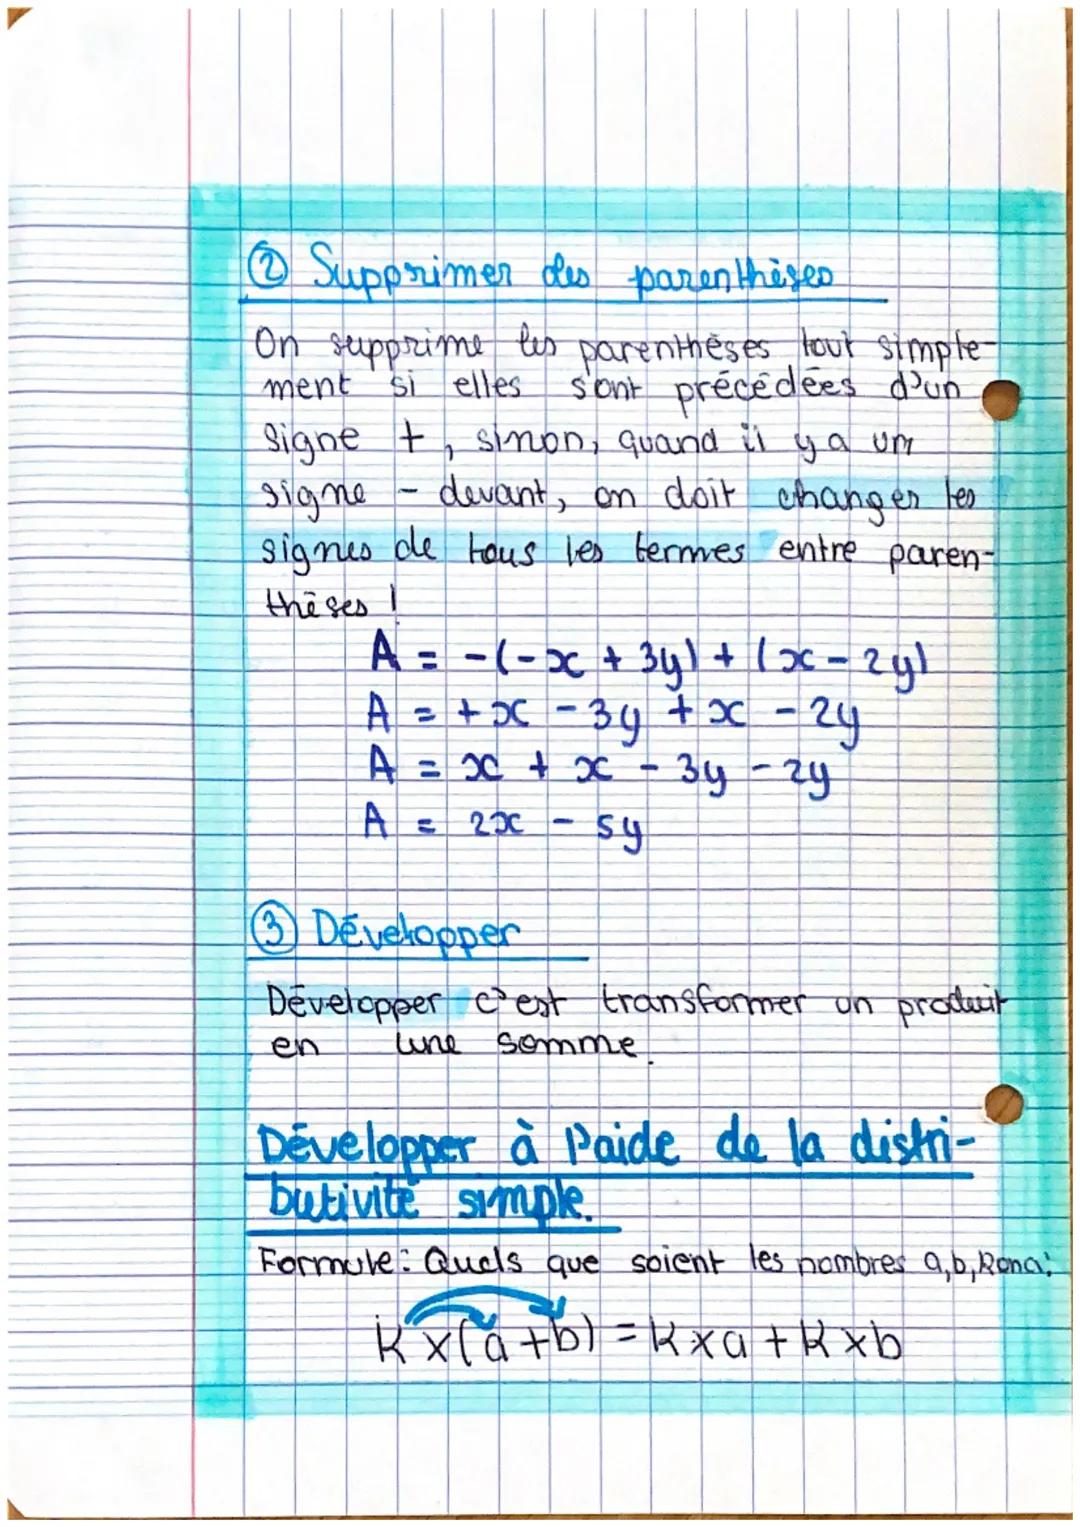 ② Supprimer des parenthèses
On supprime les parenthèses tout simple-
ment si elles sont précédées d'un
signe +, sinon, quand il y a un
signe - devant, on doit changer les
signes de tous les termes entre paren-
thèses !
A = -(-x + 3y) + (x - 2y)
A = +x - 3y + x - 2y
A = x + x - 3y - 2y
A = 2x - 5y
③ Développer
Développer c'est transformer un produit
en une somme.
Développer à l'aide de la distri-
butivité simple.
Formule : Quels que soient les nombres a, b, k on a :
k x (a + b) = k x a + k x b